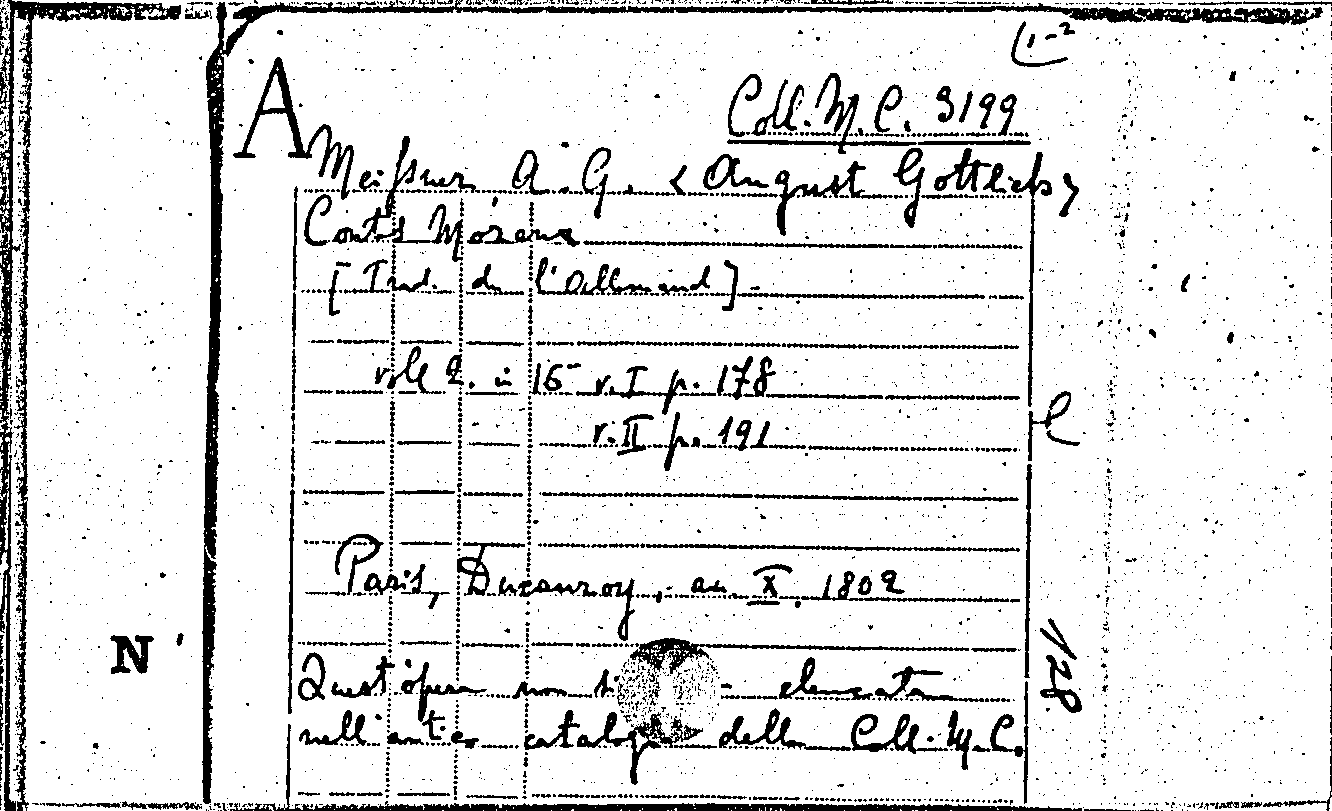 1-2
A
Coll. M. C. 3199
Meißner A. G. <August Gottlieb>
Contes Moraux
[Trad. de l'Allemand] -
vol. 2. in 16° v. I p. 178
v. II p. 191
l
Paris, Ducauroy, an X. 1802
128
N
Quest'opera non elencata
nell'antico catalogo della Coll. M. C.